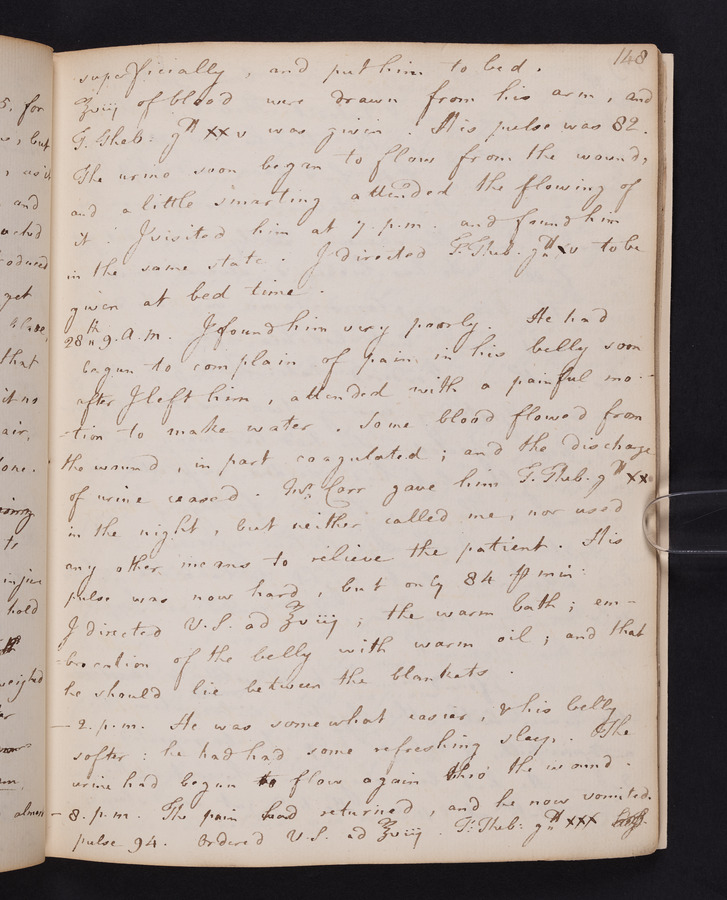 148
superficially, and put him to bed.
℥viij of blood were drawn from his arm, and
T. Theb: gtt xxv was given. His pulse was 82.
The urine soon began to flow from the wound,
and a little smarting attended the flowing of
it. I visited him at 7. p.m. and found him
in the same state. I directed T. Theb. gtt xv to be
given at bed time.
28th 9. a.m. I found him very poorly. He had
begun to complain of pain in his belly soon
after I left him, attended with a painful mo-
-tion to make water. Some blood flowed from
the wound, in part coagulated; and the discharge
of urine ceased. Mr. Carr gave him T. Theb. gtt xx
in the night, but neither called me, nor used
any other means to relieve the patient. His
pulse was now hard, but only 84 ℔ min:
I directed V.S. ad ℥viij; the warm bath; em-
-brocation of the belly with warm oil; and that
he should lie between the blankets.
— 2. p.m. He was somewhat easier, & his belly
softer: he had had some refreshing sleep. The
urine had begun to flow again thro' the wound.
— 8. p.m. The pain had returned, and he now vomited.
pulse 94. Ordered V.S. ad ℥viij. T. Theb: gtt xxx
5. for
but
and
that
air,
hold
almost